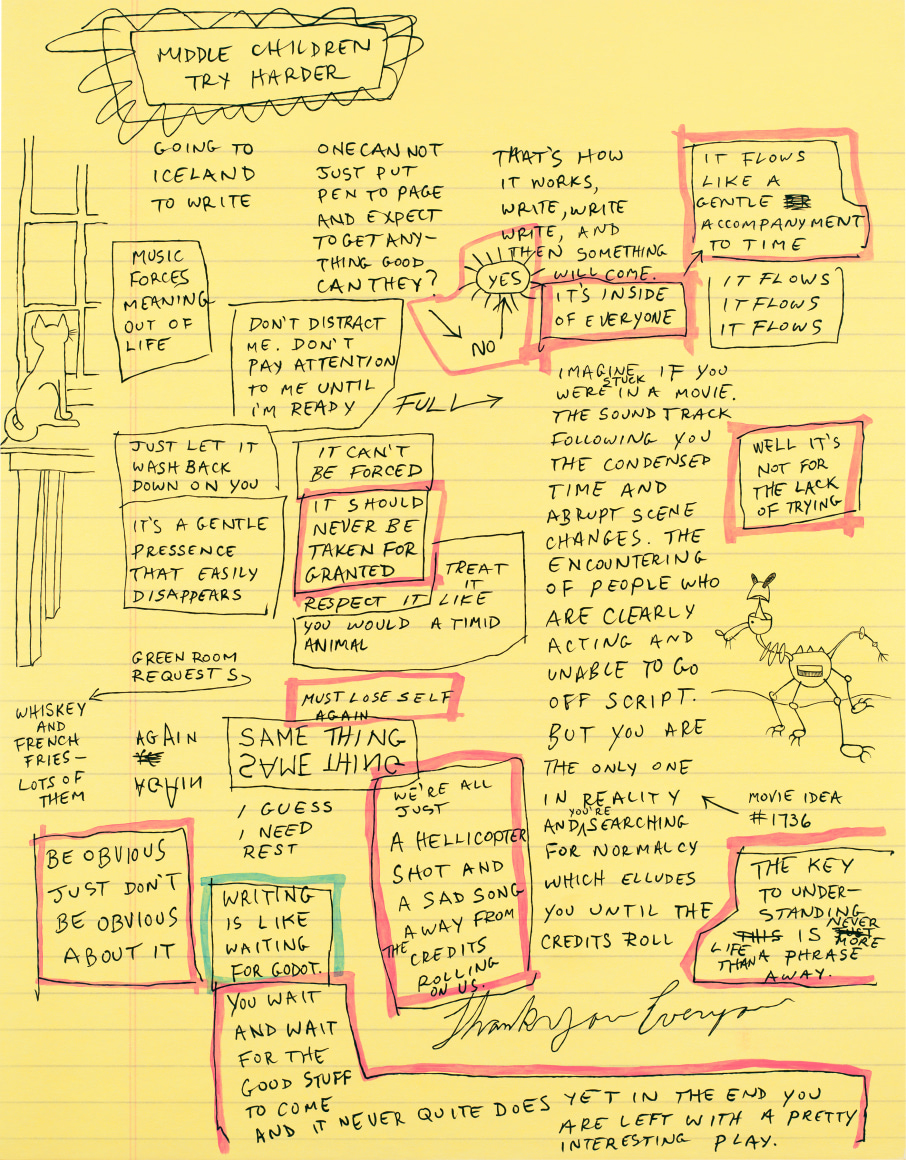 MIDDLE CHILDREN
TRY HARDER
GOING TO
ICELAND
TO WRITE
ONE CAN NOT
JUST PUT
PEN TO PAGE
AND EXPECT
TO GET ANY-
THING GOOD
CAN THEY?
THAT'S HOW
IT WORKS,
WRITE, WRITE
WRITE, AND
THEN SOMETHING
WILL COME.
IT FLOWS
LIKE A
GENTLE
ACCOMPANYMENT
TO TIME
MUSIC
FORCES
MEANING
OUT OF
LIFE
YES
NO
IT'S INSIDE
OF EVERYONE
IT FLOWS
IT FLOWS
IT FLOWS
DON'T DISTRACT
ME. DON'T
PAY ATTENTION
TO ME UNTIL
I'M READY
FULL
IMAGINE IF YOU
WERE STUCK IN A MOVIE.
THE SOUND TRACK
FOLLOWING YOU
THE CONDENSED
TIME AND
ABRUPT SCENE
CHANGES. THE
ENCOUNTERING
OF PEOPLE WHO
ARE CLEARLY
ACTING AND
UNABLE TO GO
OFF SCRIPT.
BUT YOU ARE
THE ONLY ONE
IN REALITY
AND YOU'RE SEARCHING
FOR NORMALCY
WHICH ELLUDES
YOU UNTIL THE
CREDITS ROLL
MOVIE IDEA
#1736
WELL IT'S
NOT FOR
THE LACK
OF TRYING
JUST LET IT
WASH BACK
DOWN ON YOU
IT CAN'T
BE FORCED
IT'S A GENTLE
PRESSENCE
THAT EASILY
DISAPPEARS
IT SHOULD
NEVER BE
TAKEN FOR
GRANTED
TREAT
IT
RESPECT IT LIKE
YOU WOULD A TIMID
ANIMAL
GREEN ROOM
REQUESTS
WHISKEY
AND
FRENCH
FRIES-
LOTS OF
THEM
AGAIN
AGAIN
MUST LOSE SELF
AGAIN
SAME THING
SAME THING
I GUESS
I NEED
REST
WE'RE ALL
JUST
A HELLICOPTER
SHOT AND
A SAD SONG
AWAY FROM
THE CREDITS
ROLLING
ON US.
BE OBVIOUS
JUST DON'T
BE OBVIOUS
ABOUT IT
WRITING
IS LIKE
WAITING
FOR GODOT.
THE KEY
TO UNDER-
STANDING
LIFE THIS IS NEVER JUST MORE
THAN A PHRASE
AWAY.
Thank you Everyone
YOU WAIT
AND WAIT
FOR THE
GOOD STUFF
TO COME
AND IT NEVER QUITE DOES YET IN THE END YOU
ARE LEFT WITH A PRETTY
INTERESTING PLAY.